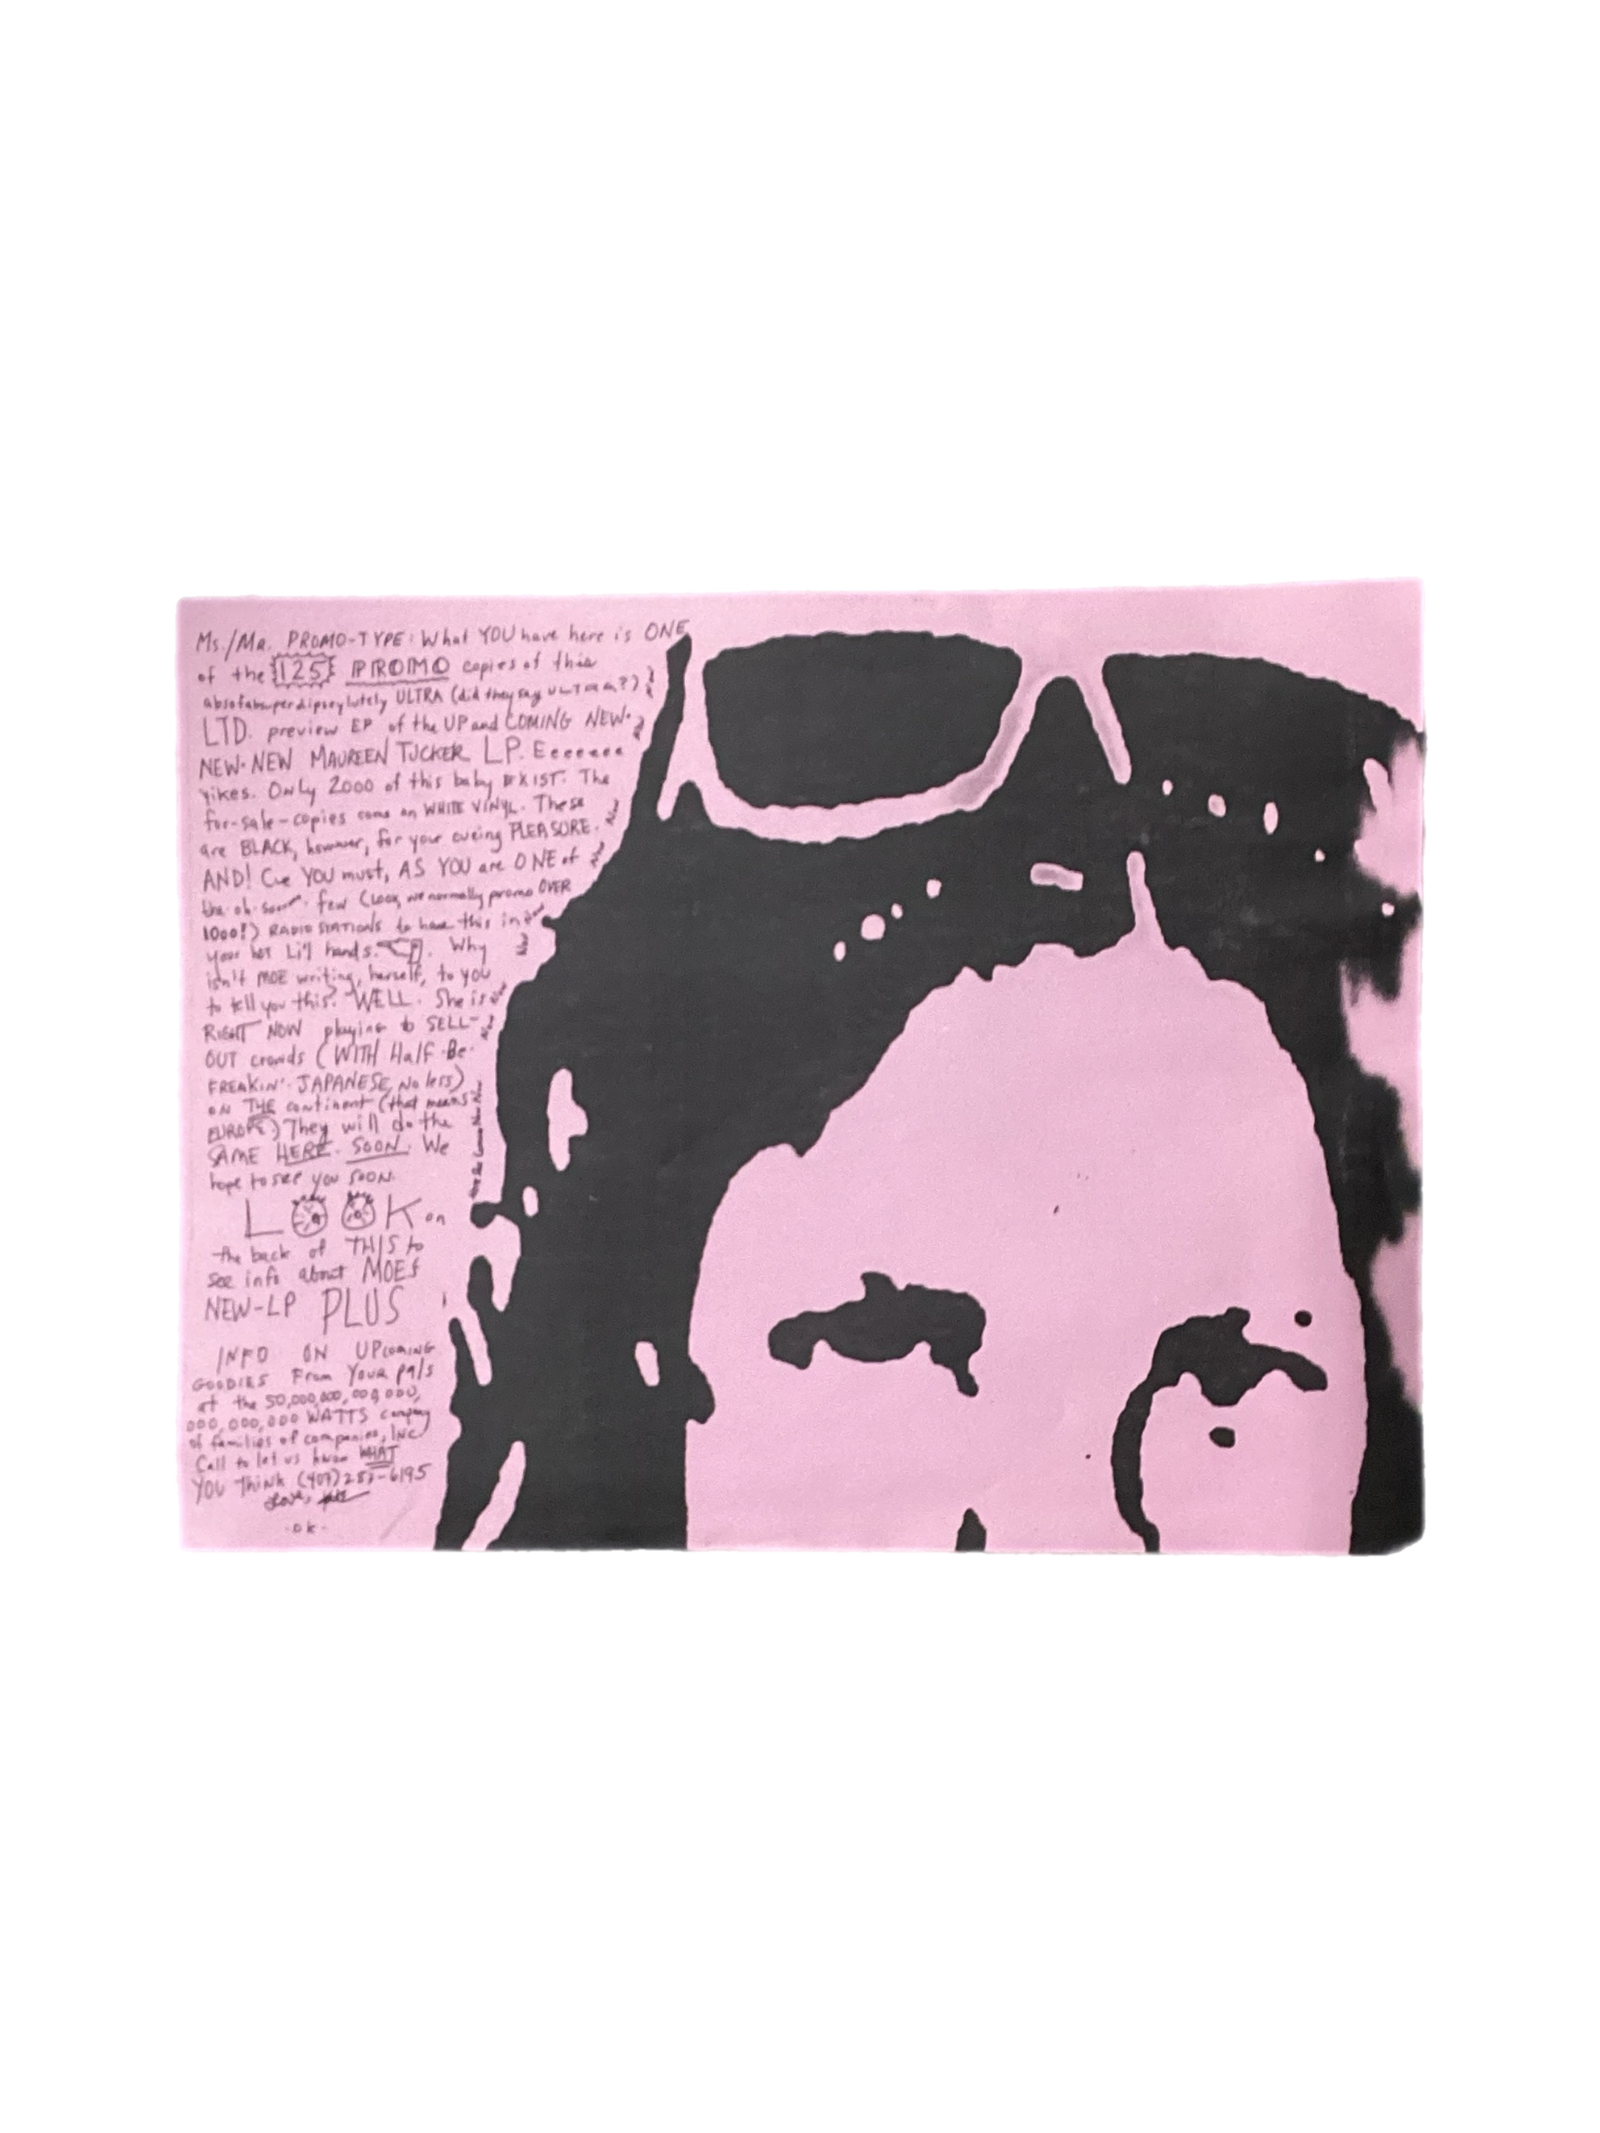 Ms./MR. PROMO-TYPE: What YOU have here is ONE
of the 125 PROMO copies of this
ULTRA (did they say ULTRA?)
LTD. preview EP of the UP and COMING NEW-
NEW-NEW MAUREEN TUCKER LP. Eeeeeee
yikes. Only 2000 of this baby EXIST. The
for-sale-copies come on WHITE VINYL. These
are BLACK, however, for your eveing PLEASURE.
AND! Cue YOU must, AS YOU are ONE of
the oh-so few (Look, we normally promo OVER
1000!) RADIO STATIONS to have this in
your hot Li'l hands. Why
isn't MOE writing, herself, to you
to tell you this? WELL. She is
RIGHT NOW playing to SELL-
OUT crowds (WITH Half-Be-
FREAKIN'-JAPANESE, No less)
ON THE continent (that means
EUROPE) They will do the
SAME HERE. SOON. We
hope to see you SOON.
LOOK on
the back of THIS to
see info about MOEs
NEW-LP PLUS
INFO ON UPcoming
GOODIES From Your pals
at the 50,000,000,000,000,
000,000,000 WATTS company
of families of companies, INC
Call to let us know WHAT
YOU THINK (407) 253-6195
Love,
-ok-
Now Now Now